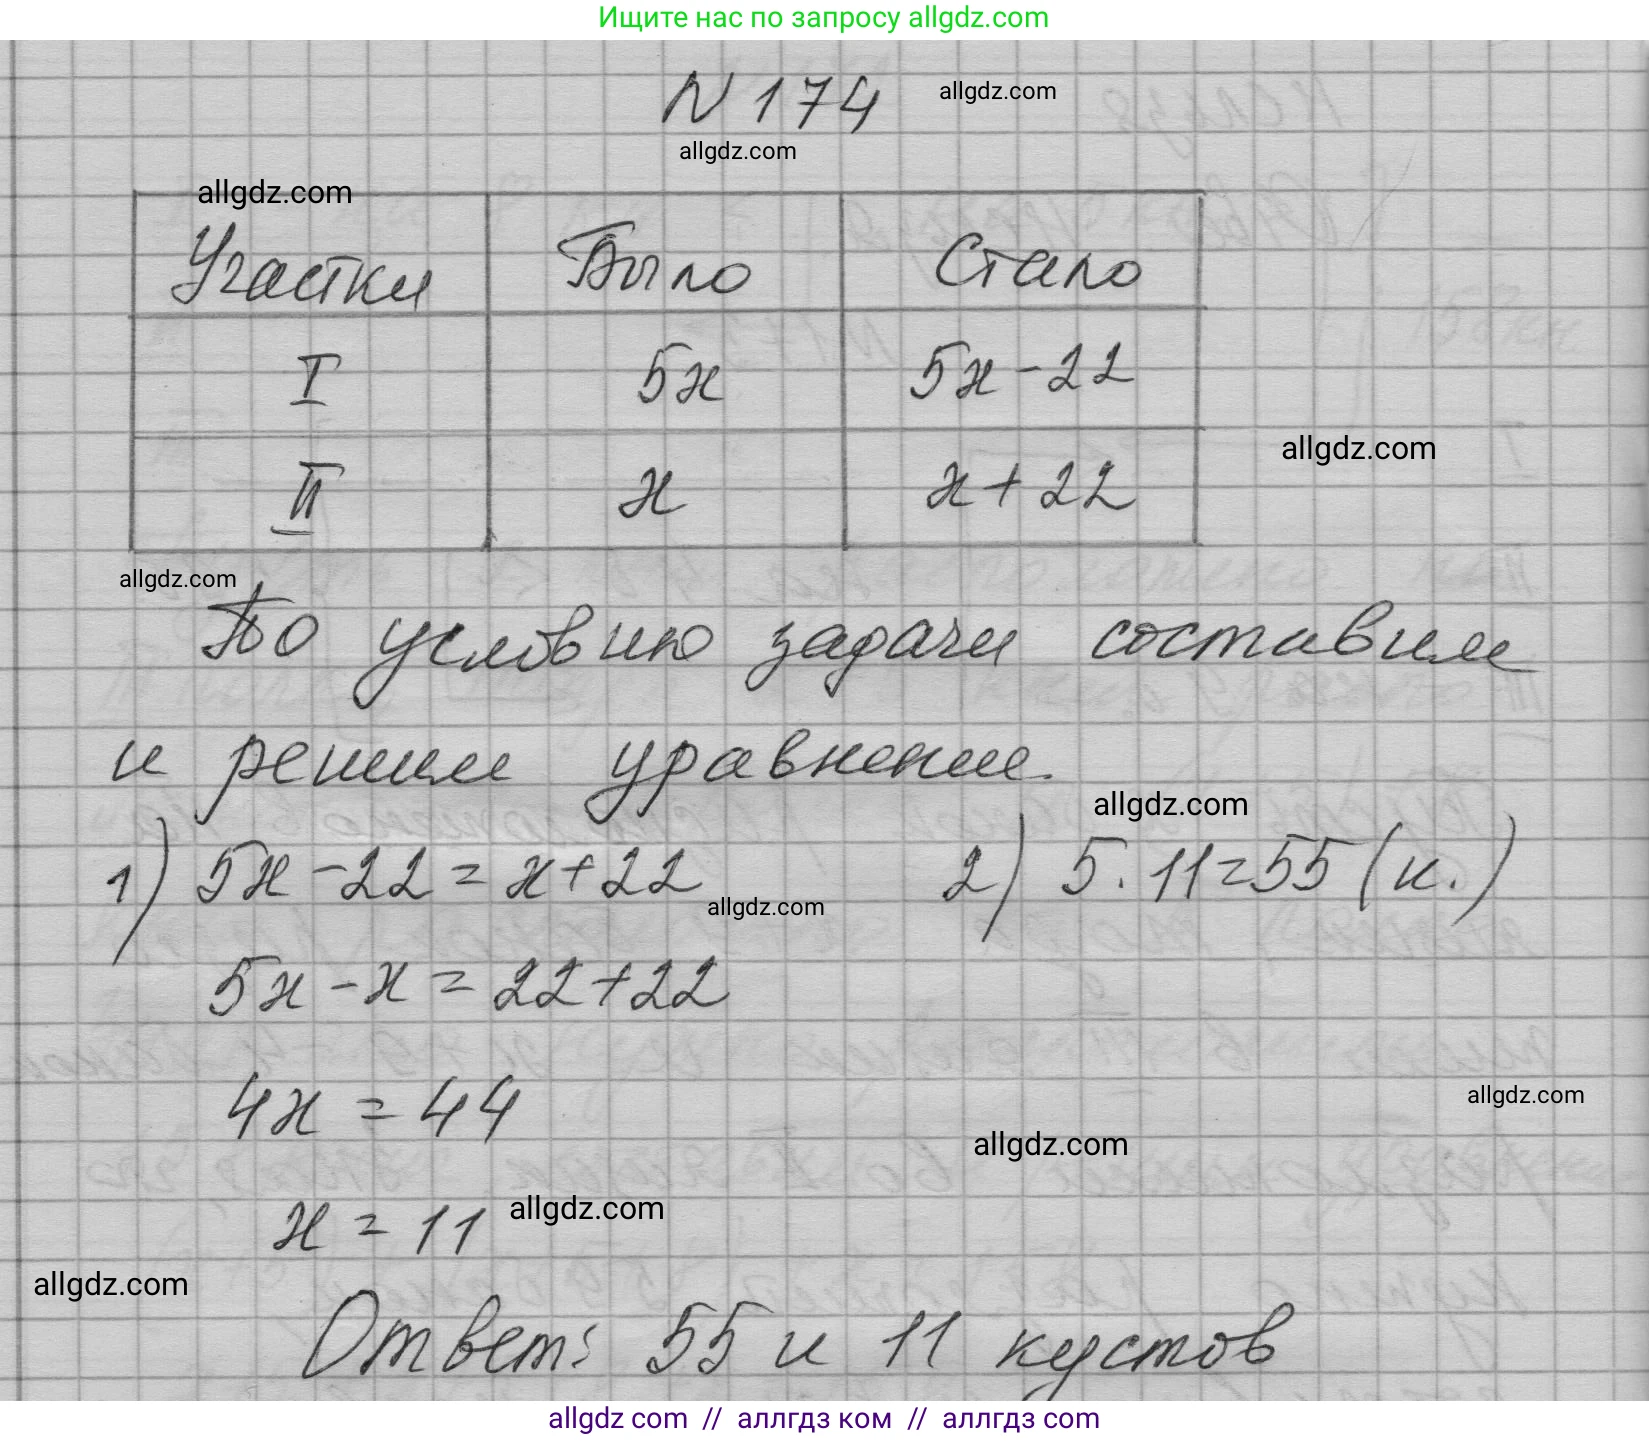 Ищите нас по запросу allgdz.com
N 174
allgdz.com
allgdz.com
allgdz.com
Участки Было Стало
I 5x 5x-22
II x x+22
allgdz.com
allgdz.com
По условию задачи составим
и решим уравнение.
allgdz.com
1) 5x-22=x+22 2) 5.11=55 (к.)
allgdz.com
5x-x=22+22
4x=44
allgdz.com
allgdz.com
x=11
allgdz.com
allgdz.com
Ответ: 55 и 11 кустов
allgdz com // аллгдз ком // аллгдз com